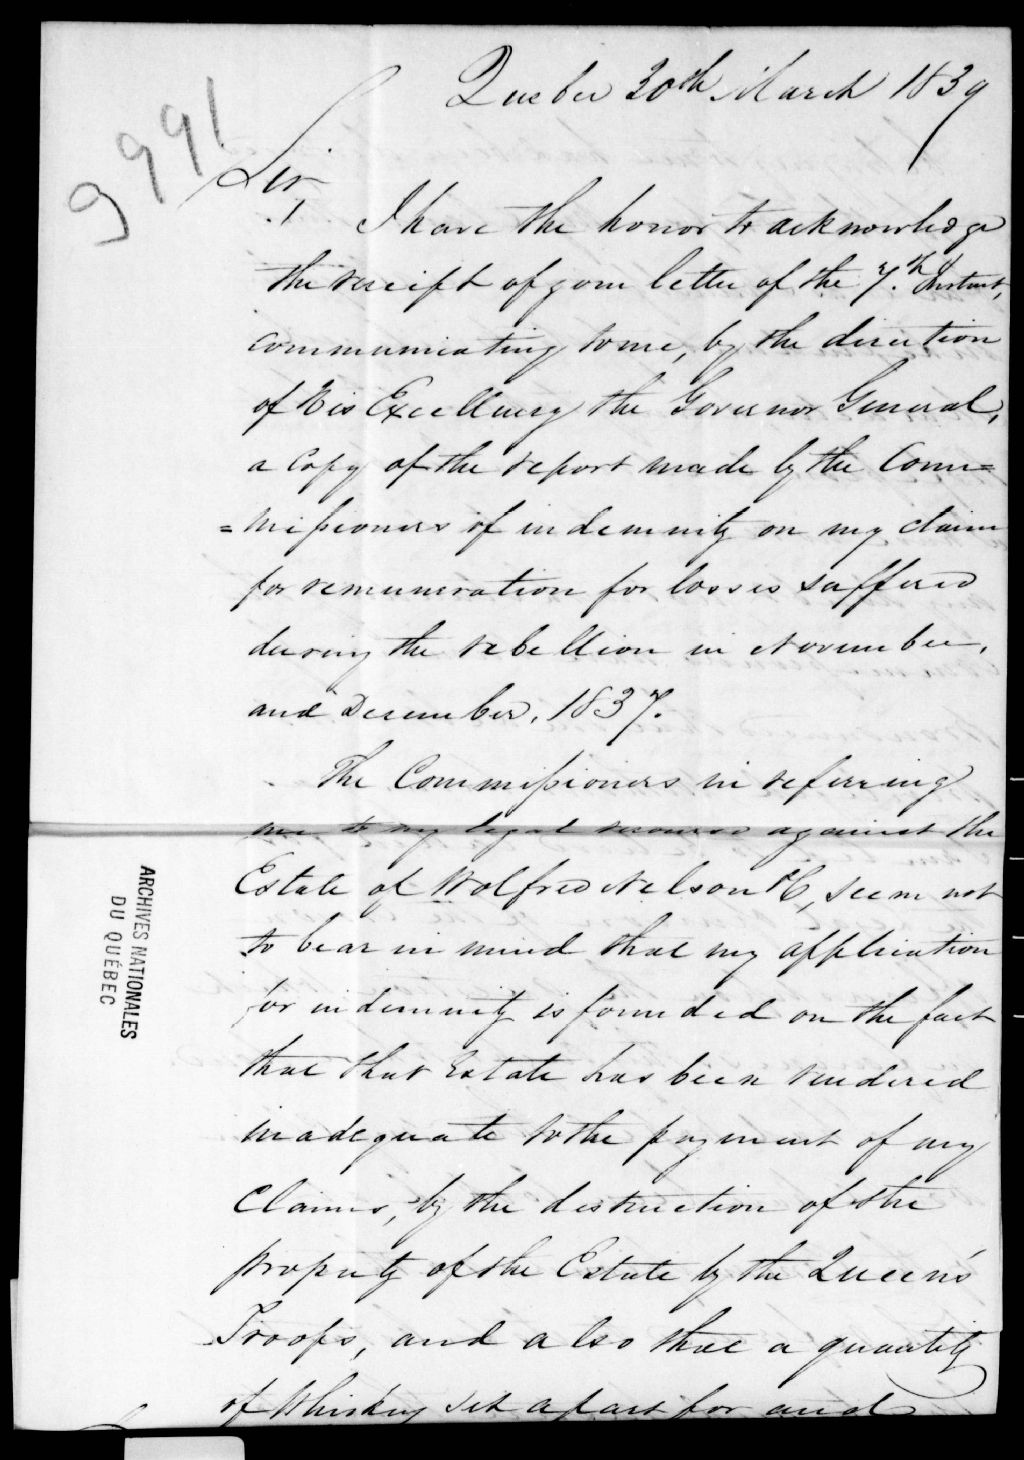 Quebec 30th March 1839
9991
Sir
I have the honor to acknowledge
the receipt of your letter of the 7th Instant,
communicating to me, by the direction
of His Excellency the Governor General,
a Copy of the report made by the Com=
=missioners of indemnity on my claim
for remuneration for losses suffered
during the rebellion in November,
and December, 1837.
The Commissioners in referring
me to my legal recourse against the
Estate of Wolfred Nelson &C, seem not
to bear in mind that my application
for indemnity is founded on the fact
that that Estate has been rendered
inadequate to the payment of my
Claims, by the destruction of the
property of the Estate by the Queen's
Troops, and also that a quantity
of Whiskey set apart for and
ARCHIVES NATIONALES
DU QUÉBEC